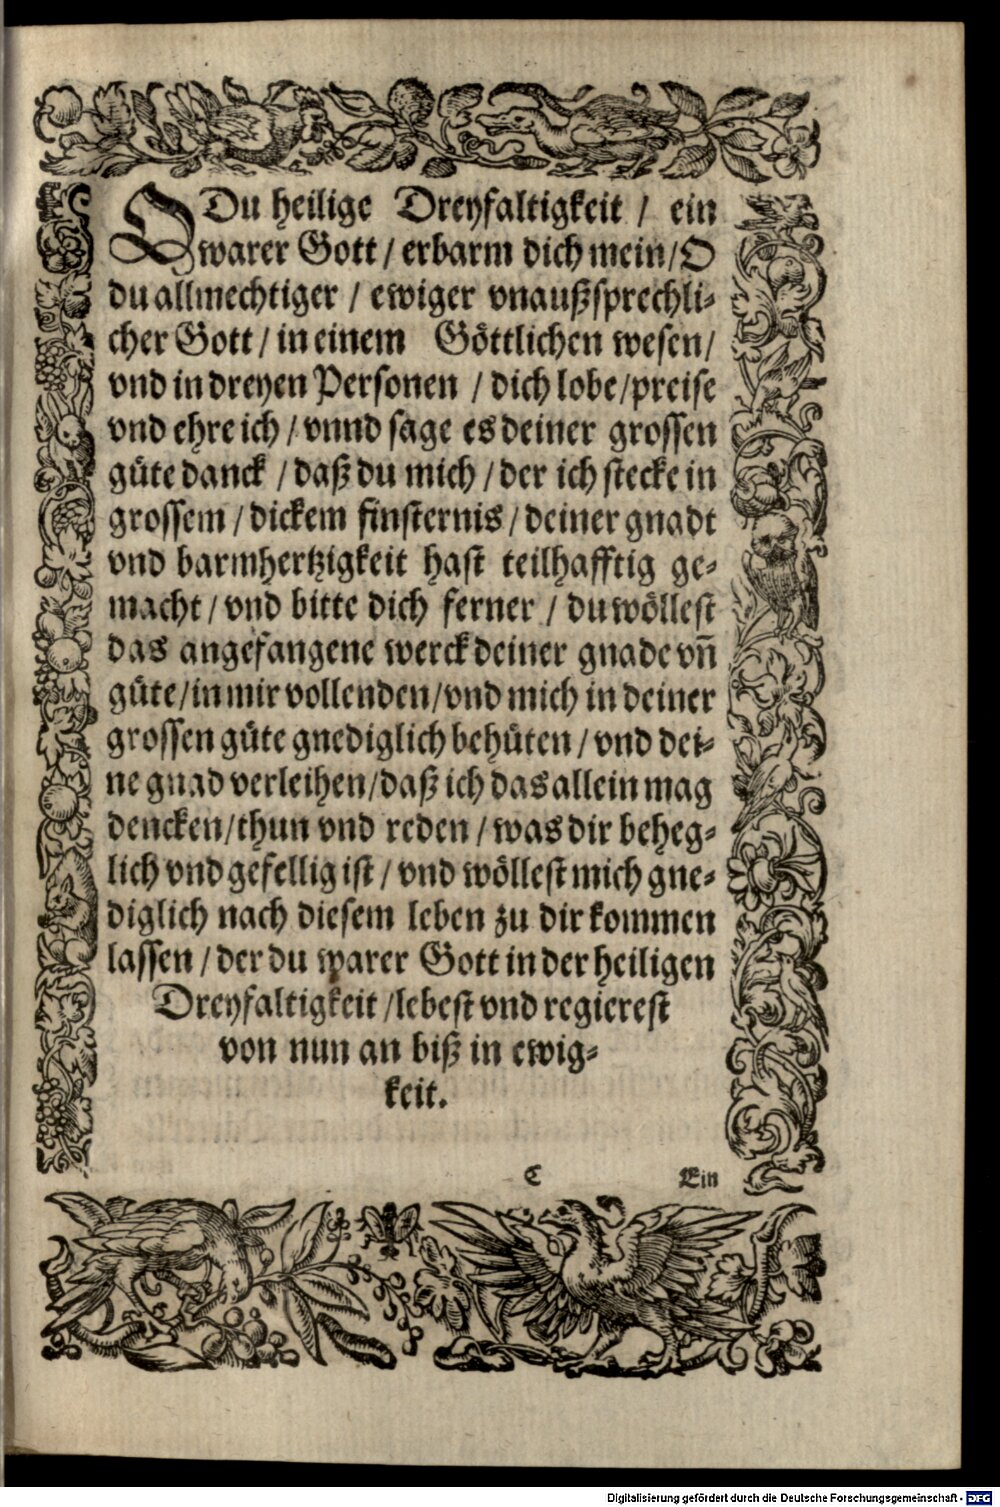 O Du heilige Dreyfaltigkeit / ein
warer Gott / erbarm dich mein / O
du allmechtiger / ewiger vnaußsprechli-
cher Gott / in einem Göttlichen wesen /
vnd in dreyen Personen / dich lobe / preise
vnd ehre ich / vnnd sage es deiner grossen
güte danck / daß du mich / der ich stecke in
grossem / dickem finsternis / deiner gnadt
vnd barmhertzigkeit hast teilhafftig ge-
macht / vnd bitte dich ferner / du wöllest
das angefangene werck deiner gnade vn̄
güte / in mir vollenden / vnd mich in deiner
grossen güte gnediglich behüten / vnd dei-
ne gnad verleihen / daß ich das allein mag
dencken / thun vnd reden / was dir beheg-
lich vnd gefellig ist / vnd wöllest mich gne-
diglich nach diesem leben zu dir kommen
lassen / der du warer Gott in der heiligen
Dreyfaltigkeit / lebest vnd regierest
von nun an biß in ewig-
keit.
C Ein
Digitalisierung gefördert durch die Deutsche Forschungsgemeinschaft - DFG